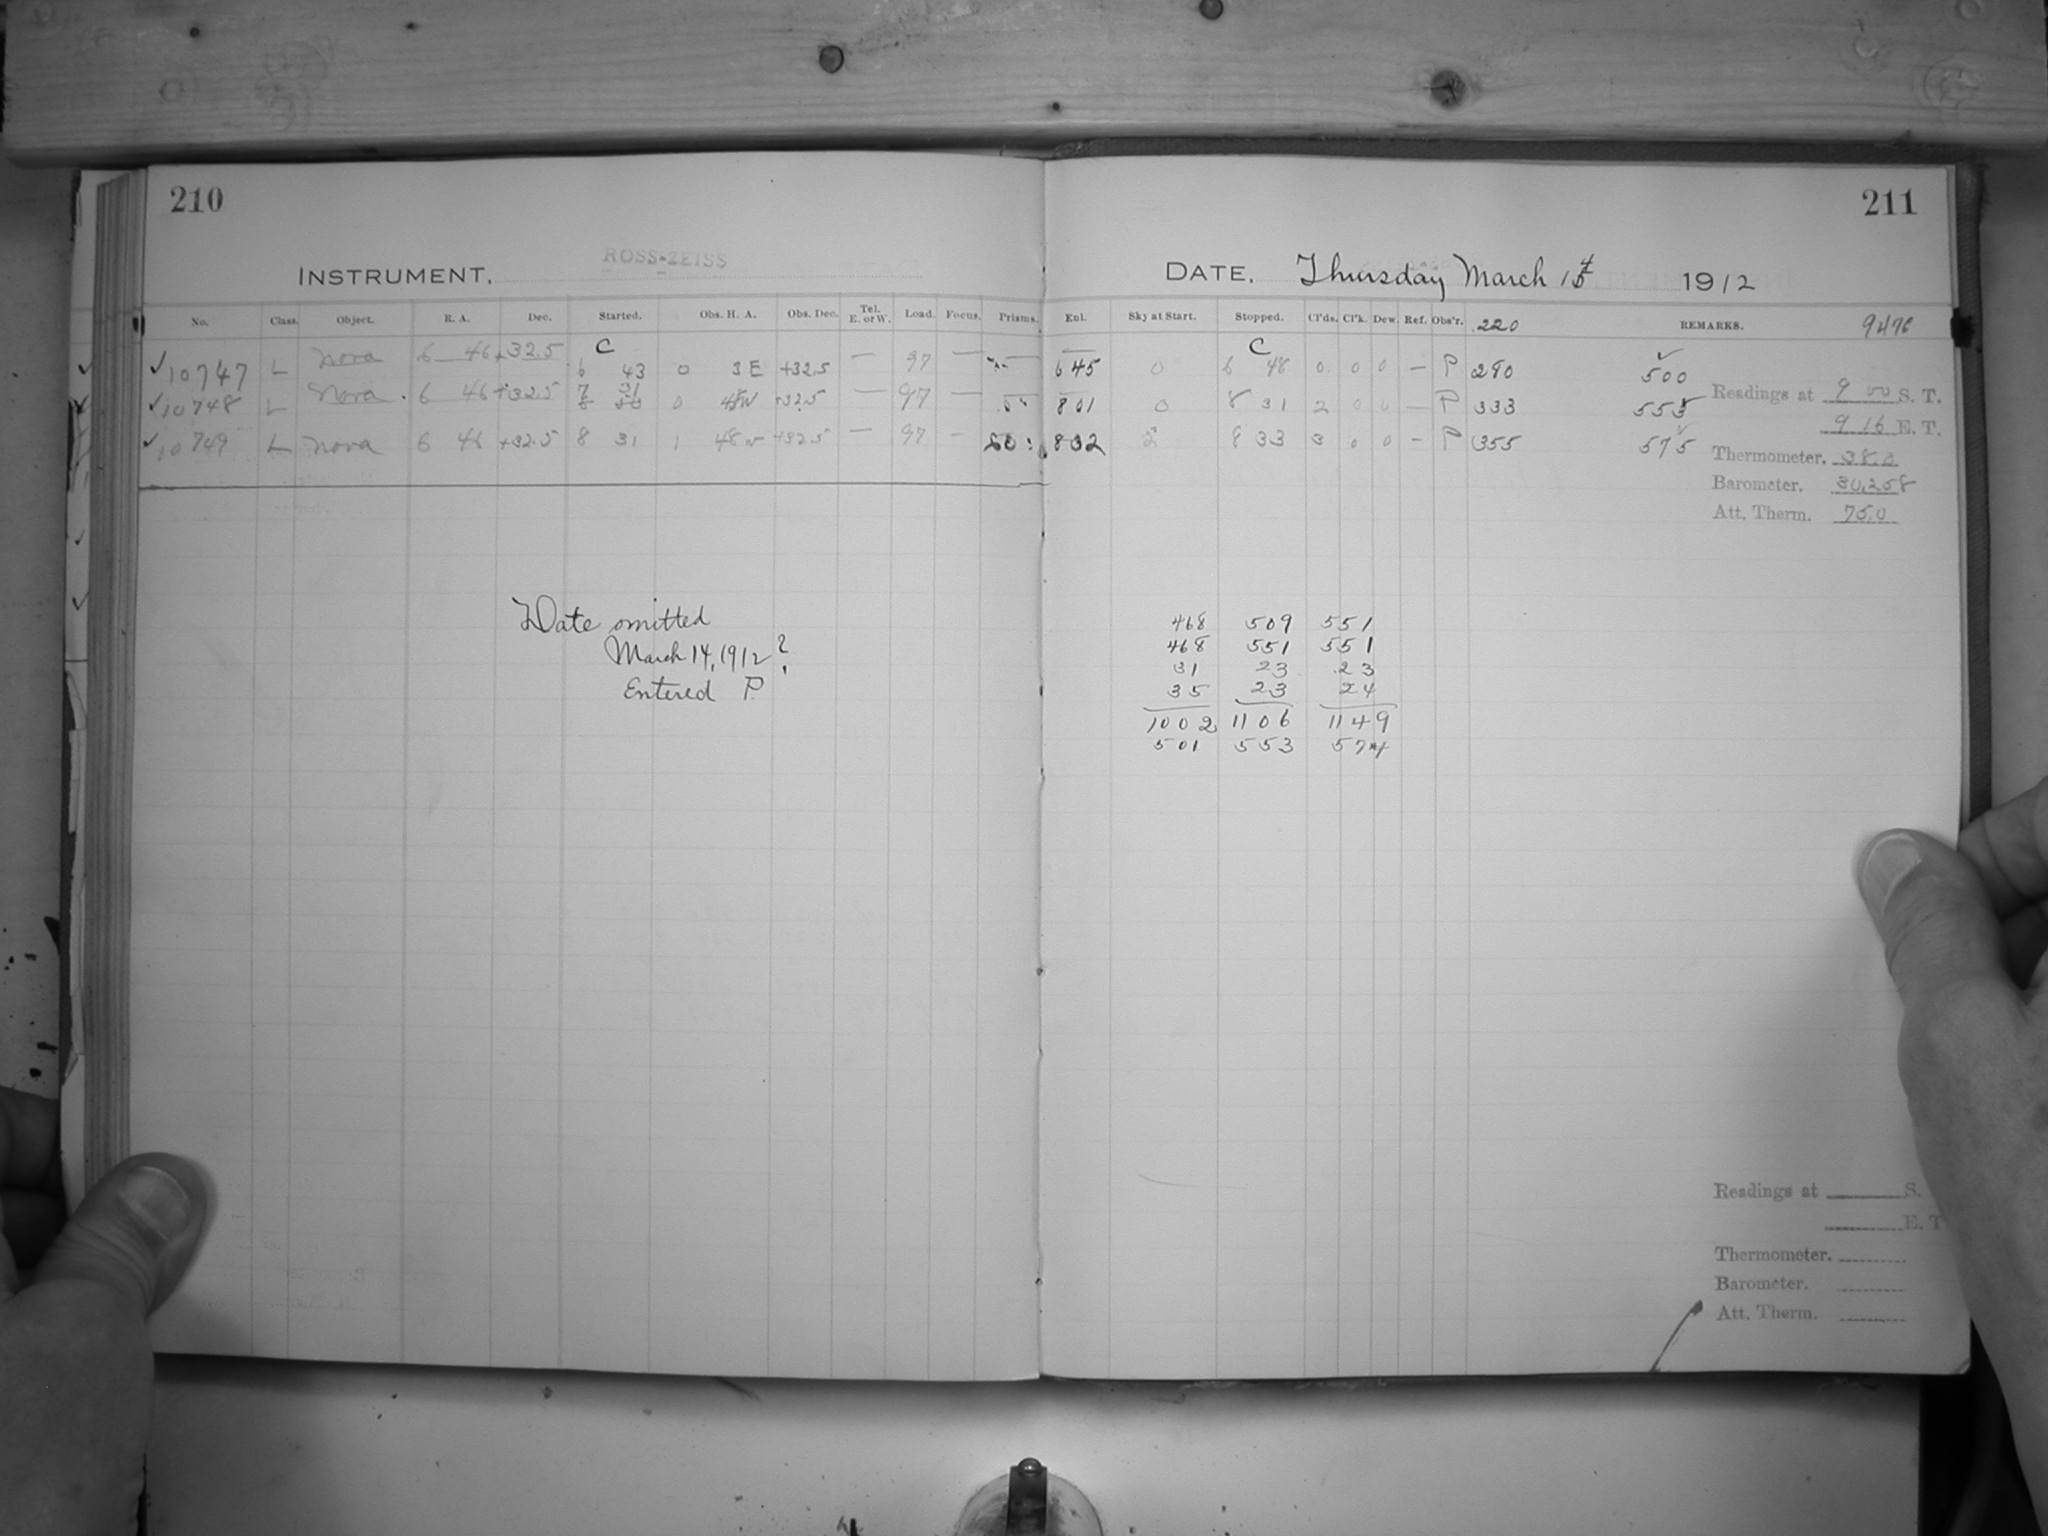 210
211
ROSS-ZEISS
INSTRUMENT.
DATE. Thursday March 14 1912
No. Class. Object. R. A. Dec. Started. Obs. H. A. Obs. Dec. Tel. E. or W. Load. Focus. Prisms. Enl. Sky at Start. Stopped. Cl'ds. Cl'k. Dew. Ref. Obs'r. 220 REMARKS. 9476
C C
✓10747 L Nova 6 46 +32.5 6 43 0 3 E +32.5 — 97 — — 6 45 0 6 48 0 0 0 — P 290 500
✓10748 L Nova 6 46 +32.5 7 31 0 45W +32.5 — 97 — 8 01 0 8 31 2 0 0 — P 333 553
✓10749 L Nova 6 46 +32.5 8 31 1 48 w +32.5 — 97 — 8 32 2 8 33 3 0 0 — P 355 575
Readings at 9 00 S. T.
9 16 E. T.
Thermometer. 38.0
Barometer. 30.258
Att. Therm. 75.0
Date omitted
March 14, 1912?
Entered P.
468 509 551
468 551 551
31 23 23
35 23 24
1002 1106 1149
501 553 574
Readings at S.
E. T
Thermometer.
Barometer.
Att. Therm.